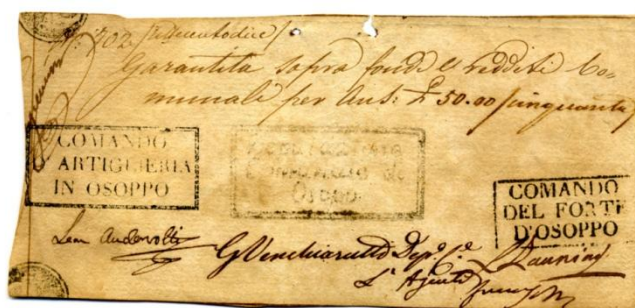 302
Garantita sopra fondi e redditi Co=
munali per Aus: £ 50.00 / cinquanta /
COMANDO
ARTIGLIERIA
IN OSOPPO
Osoppo
COMANDO
DEL FORTE
D'OSOPPO
Leon Andervolti
G Venchiarutti Dep.º C.e
L' Agente